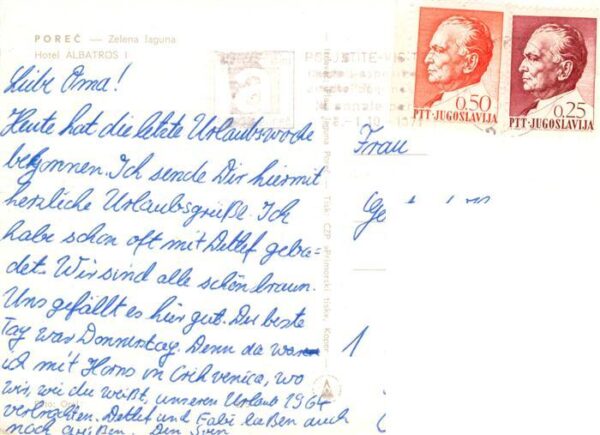 POREČ — Zelena laguna
Hotel ALBATROS I
Liebe Oma!
Heute hat die letzte Urlaubswoche
begonnen. Ich sende Dir hiermit
herzliche Urlaubsgrüße. Ich
habe schon oft mit Detlef geba=
det. Wir sind alle schön braun.
Uns gefällt es hier gut. Der beste
Tag war Donnerstag. Denn da war
ich mit Horns in Crikvenica, wo
wir, wie du weißt, unseren Urlaub 1964
verbrachten. Detlef und Fabi ließen auch
noch grüßen. Dein Sven
Frau
0,50
PTT-JUGOSLAVIJA
0,25
PTT-JUGOSLAVIJA
1971
Tisk ČZP »Primorski tisk«, Koper